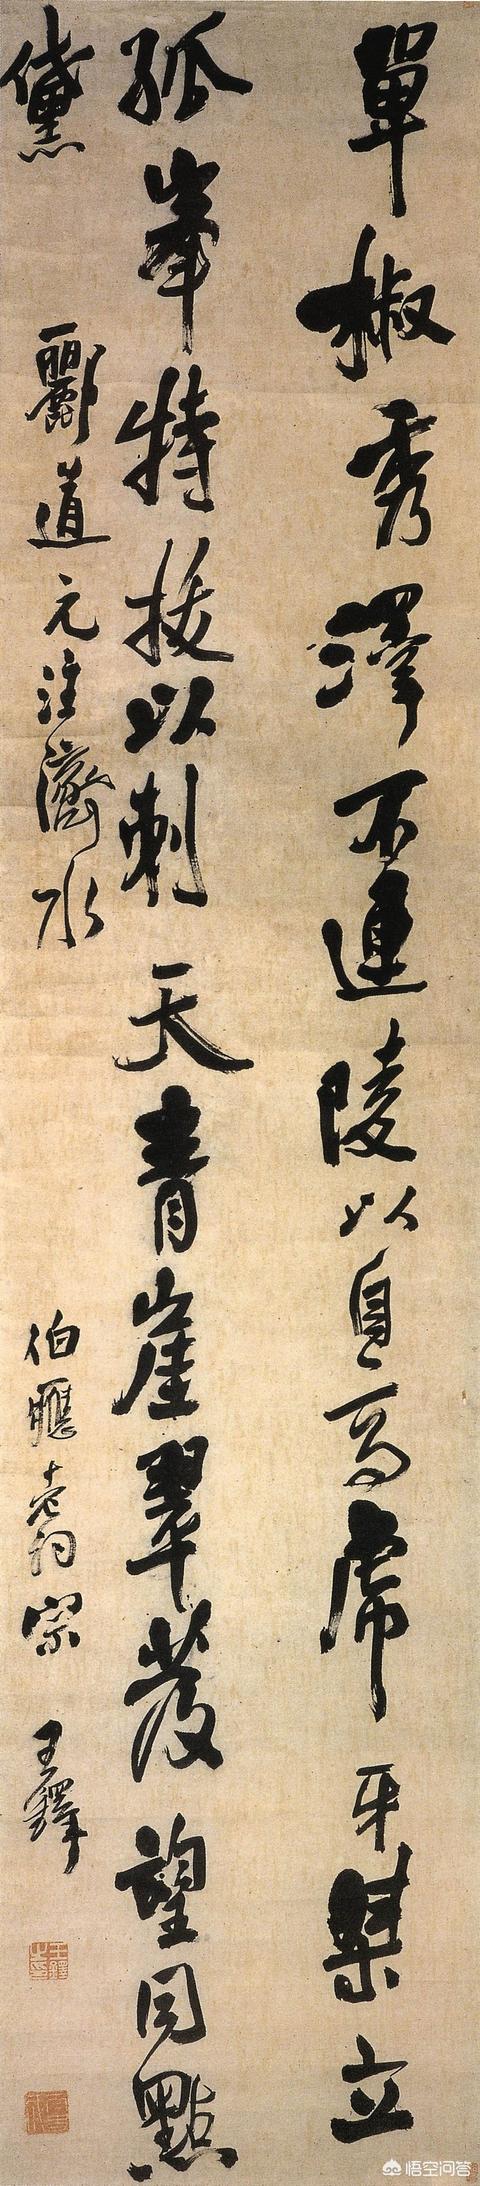 單椒秀澤不連陵以自高虎牙桀立
孤峯特拔以刺天青崖翠發望同點
黛 酈道元注濟水 伯應老詞宗 王鐸
王鐸之印
悟空问答